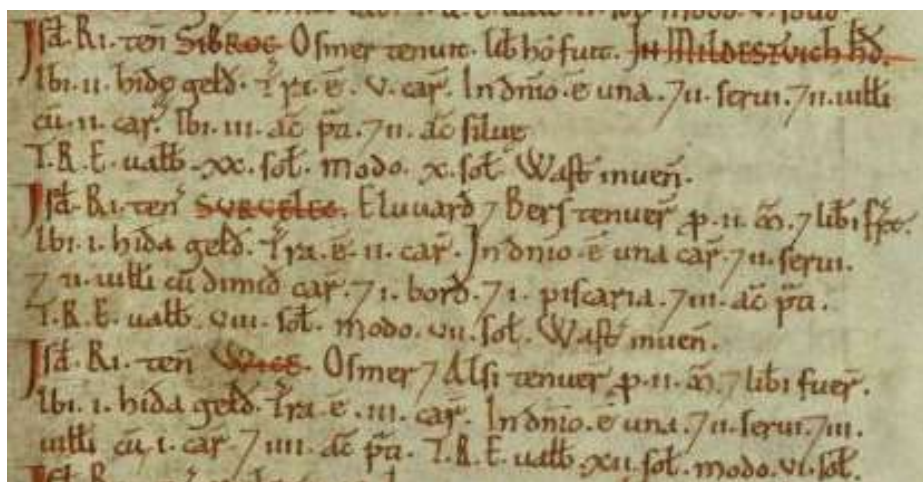 Isd̄. Ri. ten̄ SIBROC Osmer tenuit. lib̄ hō fuit. IN MILDESTVICH HD̄.
Ibi. ii. hide geld̄. Tr̄a. ē. v. car̄. In dn̄io. ē una. ⁊ ii. serui. ⁊ ii. uilli
cū. ii. car̄. Ibi. iii. ac̄ p̄ti. ⁊ ii. ac̄ silue
T.R.E. ualb̄. xx. sol̄. modo. x. sol̄. Wast̄ inuen̄.
Isd̄. Ri. ten̄ SURVELEC. Eluuard ⁊ Bers tenuer̄ p̄. ii. M̄. ⁊ lib̄i
Ibi. i. hida geld̄. Tr̄a. ē. ii. car̄. In dn̄io ē una car̄. ⁊ ii. serui.
⁊ ii. uilli cū dimid̄ car̄. ⁊ i. bord̄. ⁊ i. piscaria. ⁊ iii. ac̄ p̄ti.
T.R.E. ualb̄. viii. sol̄. modo. vii. sol̄. Wast̄ inuen̄.
Isd̄. Ri. ten̄ WICE. Osmer ⁊ Alsi tenuer̄ p̄. ii. M̄. ⁊ lib̄i fuer̄.
Ibi. i. hida geld̄. Tr̄a. ē. iii. car̄. In dn̄io. ē una. ⁊ ii. serui. ⁊ iii.
uilli cū. i. car̄. ⁊ iiii. ac̄ p̄ti. T.R.E. ualb̄. xii. sol̄. modo. vi. sol̄.